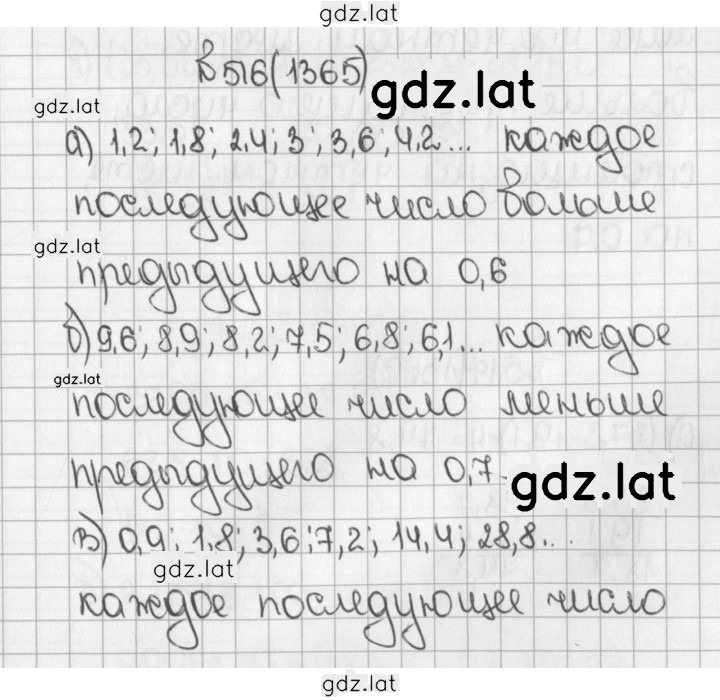 gdz.lat
№516(1365)
gdz.lat
gdz.lat
а) 1,2; 1,8; 2,4; 3; 3,6; 4,2... каждое
последующее число больше
gdz.lat
предыдущего на 0,6
б) 9,6; 8,9; 8,2; 7,5; 6,8; 6,1... каждое
gdz.lat
последующее число меньше
предыдущего на 0,7.
gdz.lat
в) 0,9; 1,8; 3,6; 7,2; 14,4; 28,8...
gdz.lat
каждое последующее число
gdz.lat